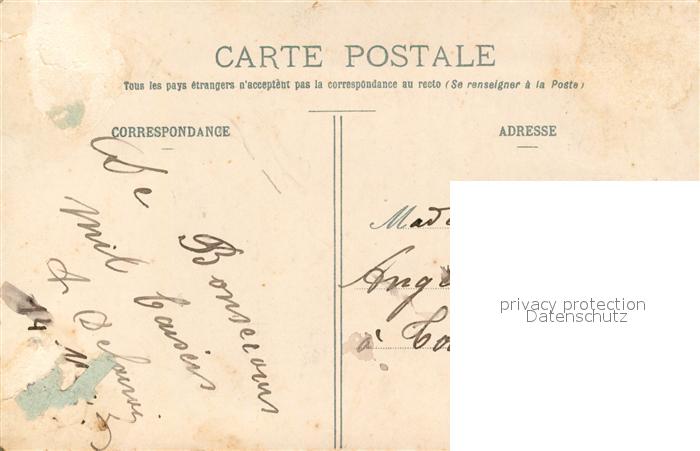 CARTE POSTALE
Tous les pays étrangers n'acceptent pas la correspondance au recto (Se renseigner à la Poste)
CORRESPONDANCE
ADRESSE
De Bonsecours
mil baisers
14
Mad
Ange
à To
privacy protection
Datenschutz